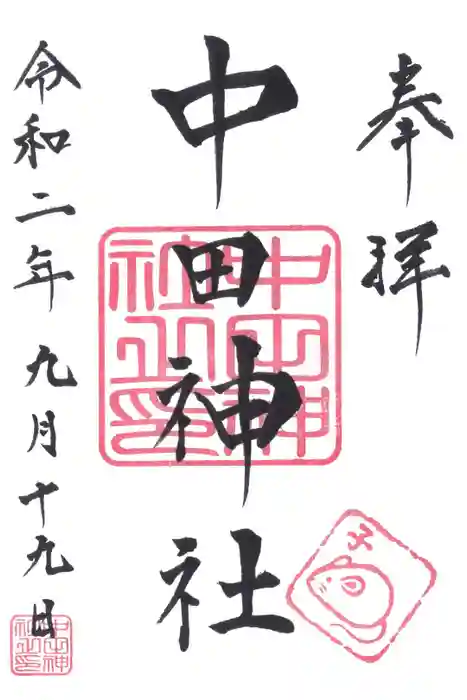 奉拝
中田神社
中田神社之印
子
令和二年九月十九日
中田神社之印